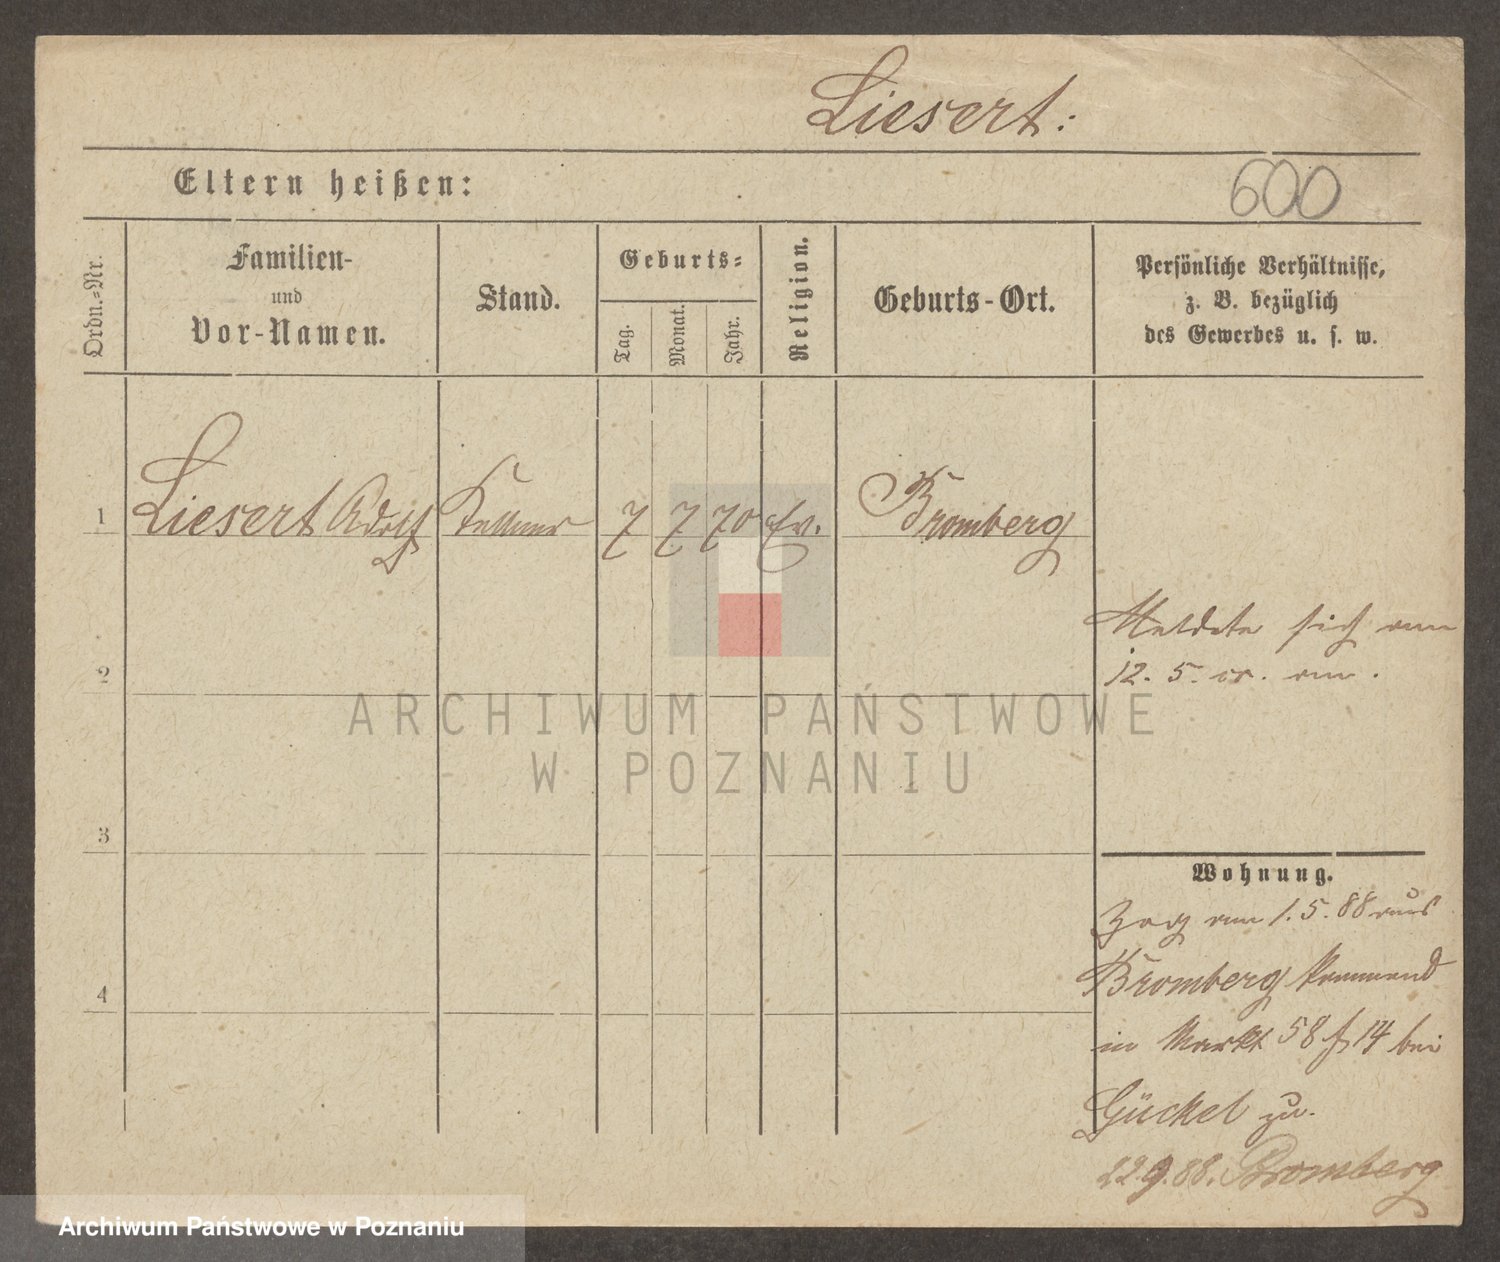 Liesert:
Eltern heißen:
600
Ordn.=Nr.
Familien-
und
Vor-Namen.
Stand.
Geburts=
Tag.
Monat.
Jahr.
Religion.
Geburts-Ort.
Persönliche Verhältnisse,
z. B. bezüglich
des Gewerbes u. s. w.
1 Liesert Adolf Kellner 7 7 70 Ev. Bromberg
Meldete sich am
12. 5. cr. an.
2
ARCHIWUM PAŃSTWOWE
W POZNANIU
3
Wohnung.
Zog am 1. 5. 88 aus
Bromberg kommend
in Markt 58 f 14 bei
Gückel zu.
22.9.88. Bromberg
4
Archiwum Państwowe w Poznaniu